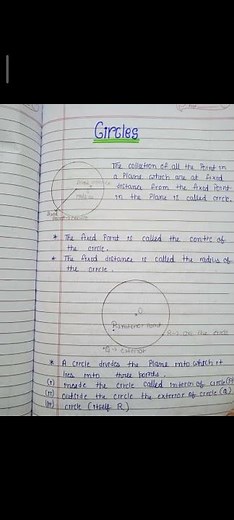 Circles
The collection of all the Point in
a Plane which are at fixed
distance from the fixed Point
in the Plane is called circle.
* The fixed Point is called the centre of
the circle.
* The fixed distance is called the radius of
the circle.
O
* A circle divides the Plane into which it
lies into three
(i) inside the circle called interior of circle (P)
(ii) outside the circle the exterior of circle (Q)
(iii) circle (itself R)